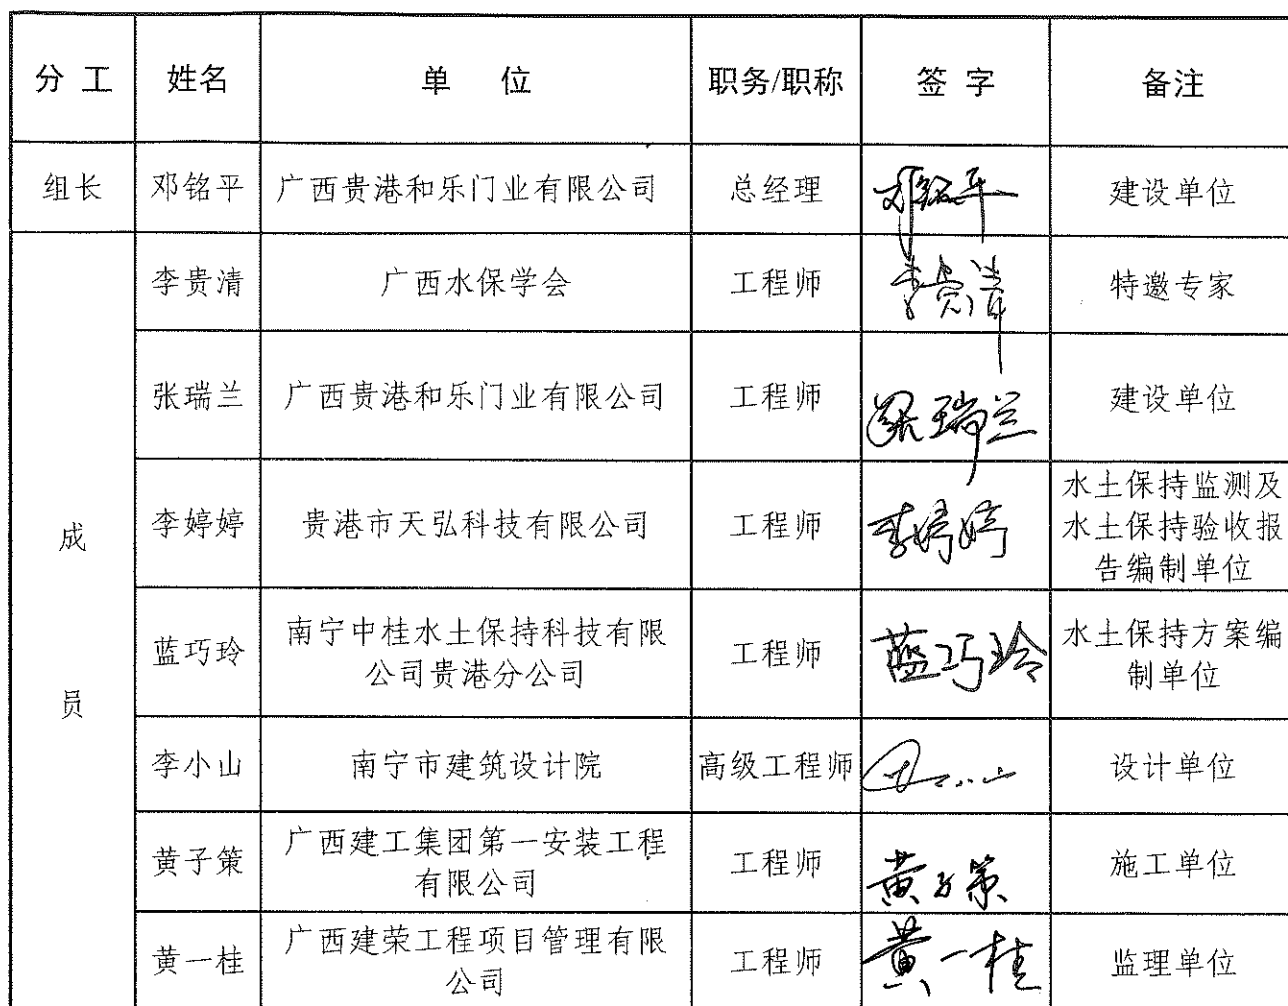 分工 姓名 单位 职务/职称 签字 备注
组长 邓铭平 广西贵港和乐门业有限公司 总经理 邓铭平 建设单位
李贵清 广西水保学会 工程师 李贵清 特邀专家
张瑞兰 广西贵港和乐门业有限公司 工程师 张瑞兰 建设单位
成
员
李婷婷 贵港市天弘科技有限公司 工程师 李婷婷 水土保持监测及
水土保持验收报
告编制单位
蓝巧玲 南宁中桂水土保持科技有限
公司贵港分公司 工程师 蓝巧玲 水土保持方案编
制单位
李小山 南宁市建筑设计院 高级工程师 设计单位
黄子策 广西建工集团第一安装工程
有限公司 工程师 黄子策 施工单位
黄一桂 广西建荣工程项目管理有限
公司 工程师 黄一桂 监理单位